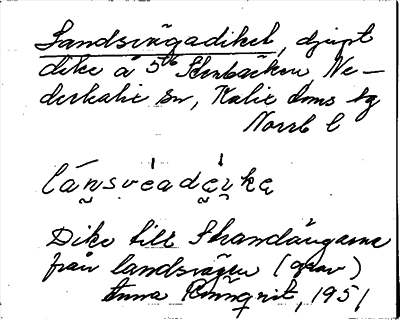 Landsvägadiket, djupt
dike å 5th Stenbäcken, Ne-
derkalix sn, Kalix doms sg
Norrb l
lánsvéadei̯kę
Dike till Strandängarna
från landsvägen (grav)
Anna Rönnqvist, 1951